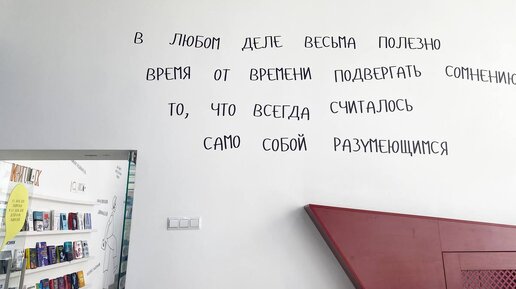 В ЛЮБОМ ДЕЛЕ ВЕСЬМА ПОЛЕЗНО
ВРЕМЯ ОТ ВРЕМЕНИ ПОДВЕРГАТЬ СОМНЕНИЮ
ТО, ЧТО ВСЕГДА СЧИТАЛОСЬ
САМО СОБОЙ РАЗУМЕЮЩИМСЯ